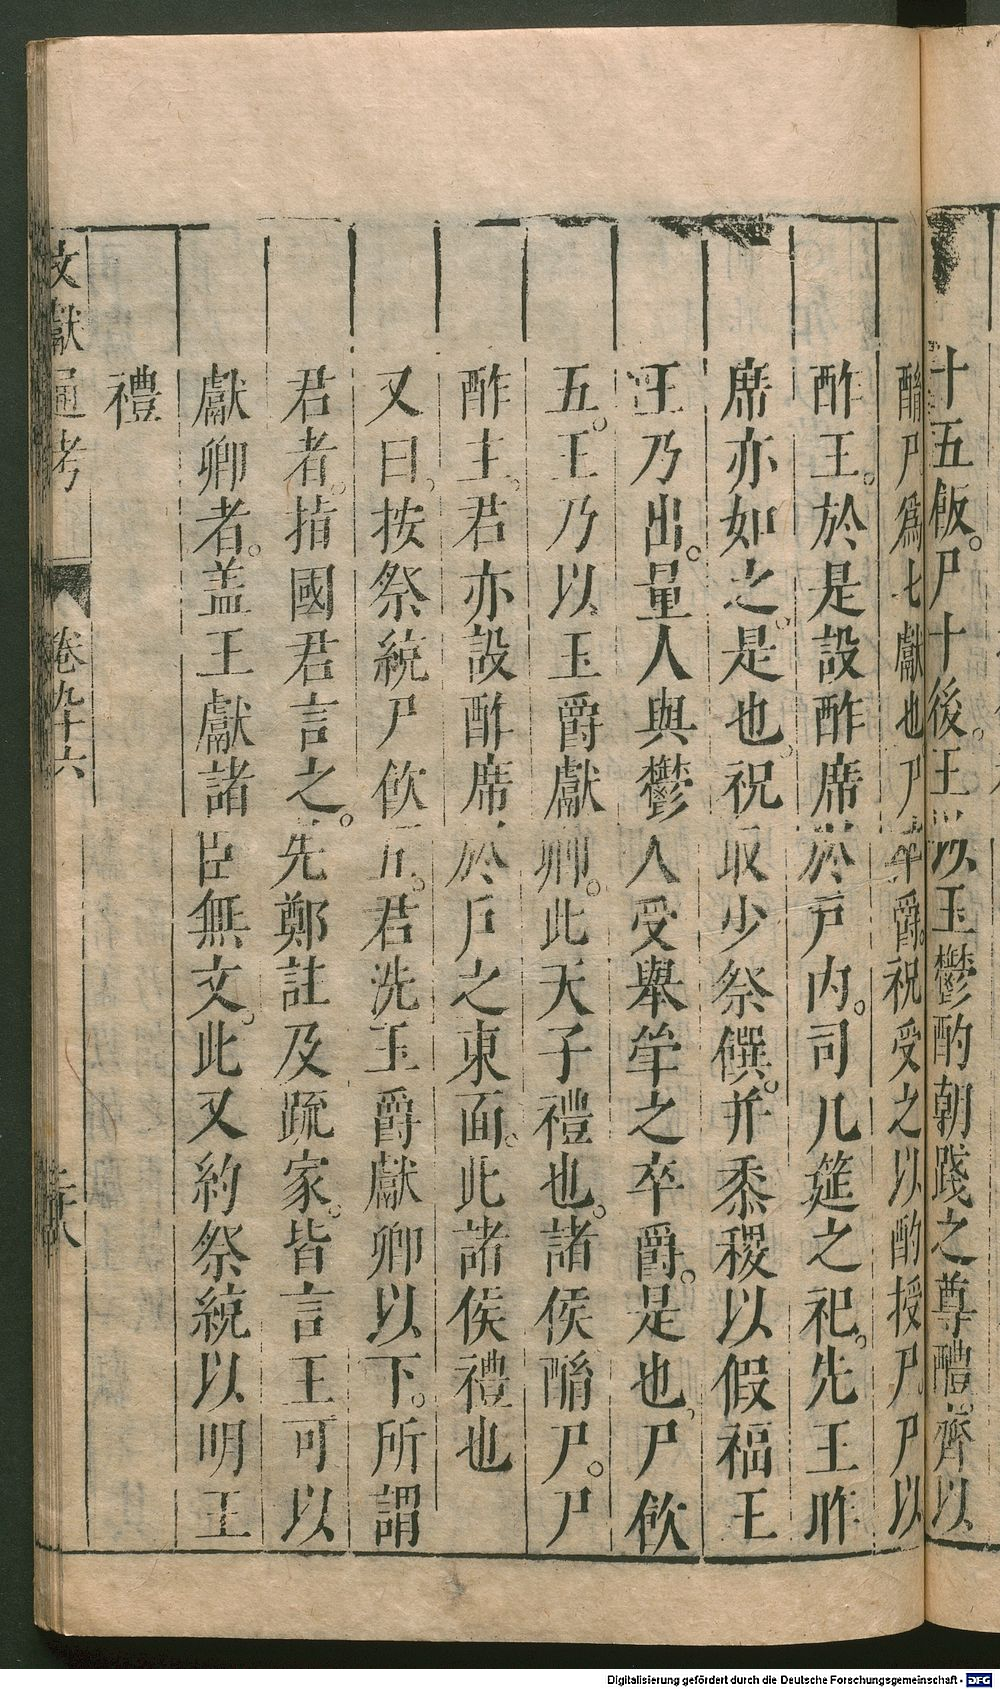 十五飯。尸十後。王以玉鬱酌朝踐之尊醴齊以
酳尸爲七獻也尸卒爵。祝受之以酌授尸尸以
酢王。於是設酢席於戶內。司几筵之祀。先王胙
席亦如之。是也。祝取少祭饌。并黍稷以假福王
王乃出。量人與鬱人受舉斝之卒爵。是也。尸飲
五。王乃以玉爵獻卿。此天子禮也。諸侯酳尸。尸
酢主。君亦設酢席於戶之東面。此諸侯禮也
又曰。按祭統尸飲五。君洗玉爵獻卿以下。所謂
君者。指國君言之。先鄭註及疏家。皆言王可以
獻卿者。蓋王獻諸臣無文。此又約祭統以明王
禮
文獻通考 卷九十六
Digitalisierung gefördert durch die Deutsche Forschungsgemeinschaft - DFG